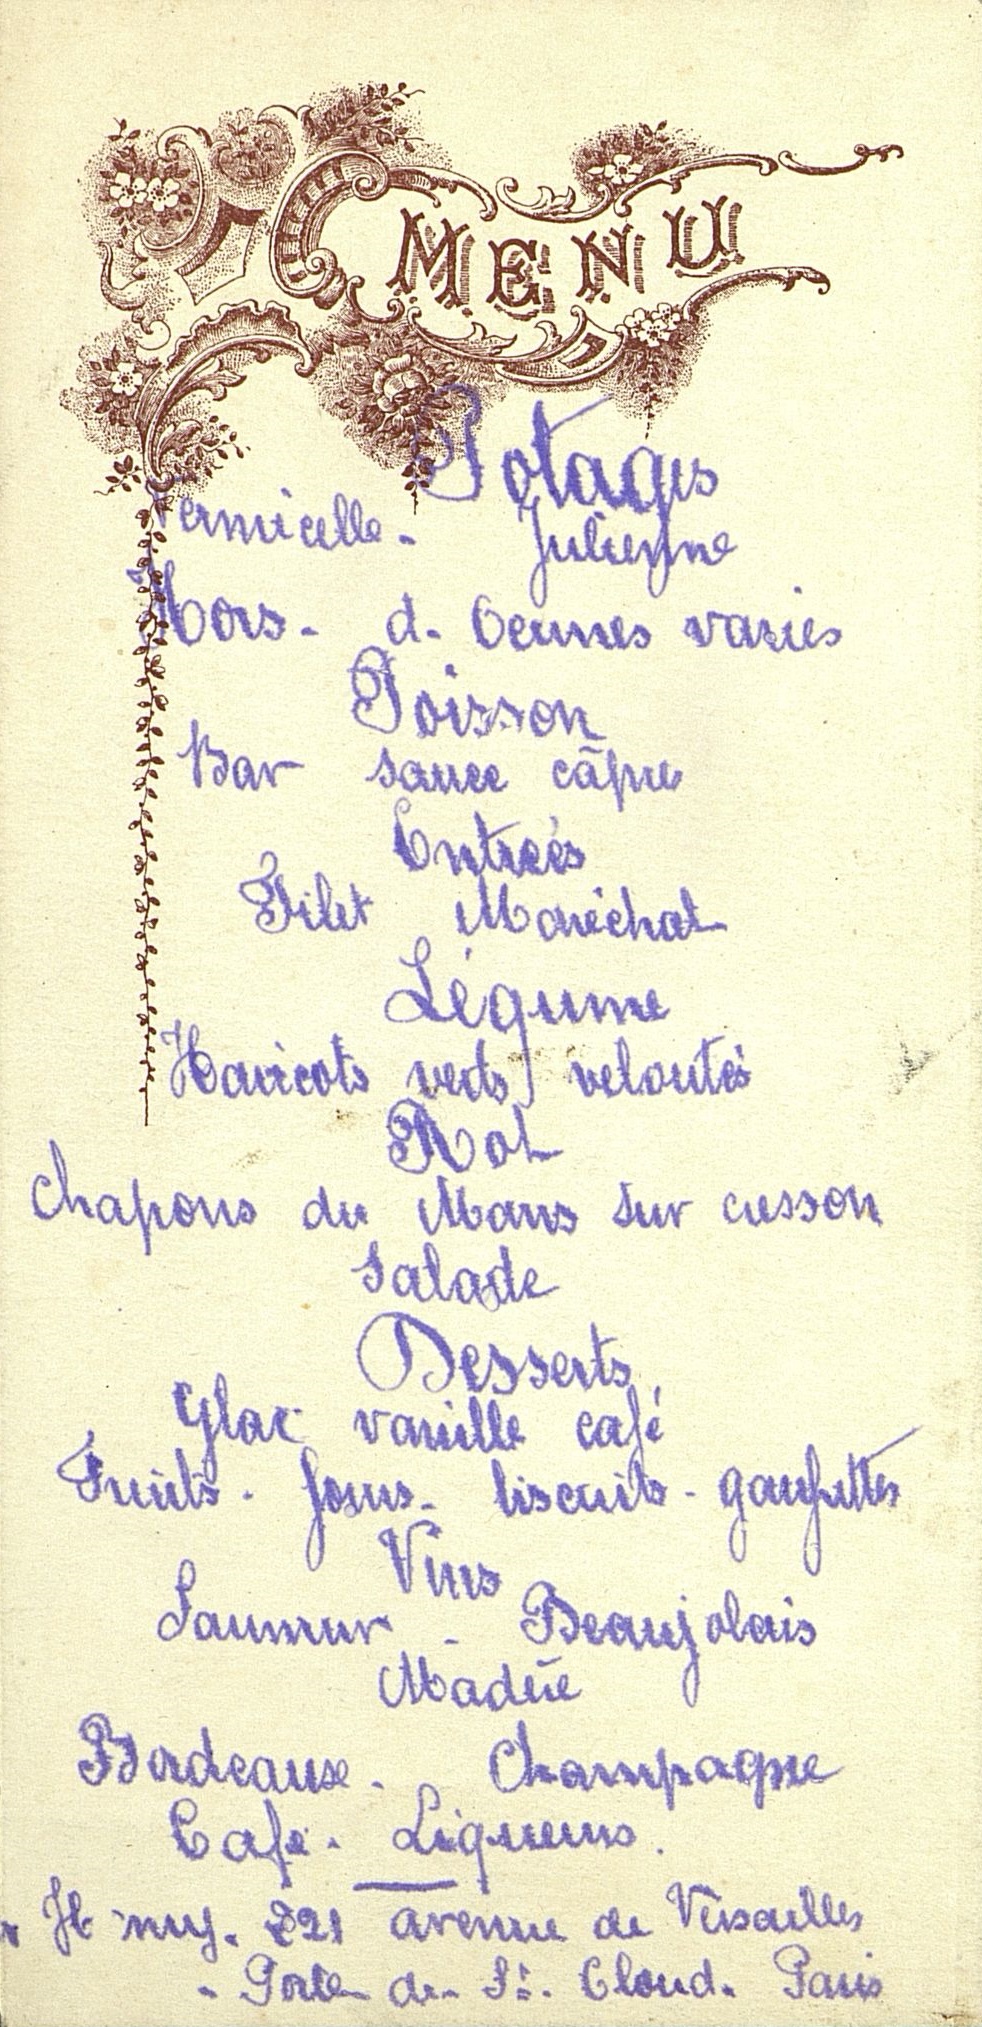 MENU
Potages
Vermicelle - Julienne
Hors - d - Oeuvres variés
Poisson
Bar sauce câpre
Entreés
Filet Maréchal
Légume
Haricots verts veloutés
Rot
Chapons du Mans sur cresson
Salade
Desserts
Glace vanille café
Fruits - fours - biscuits - gaufrettes
Vins
Saumur - Beaujolais
Madère
Bordeaux - Champagne
Café - Liqueurs.
221 avenue de Versailles
- Porte de St. Cloud. Paris